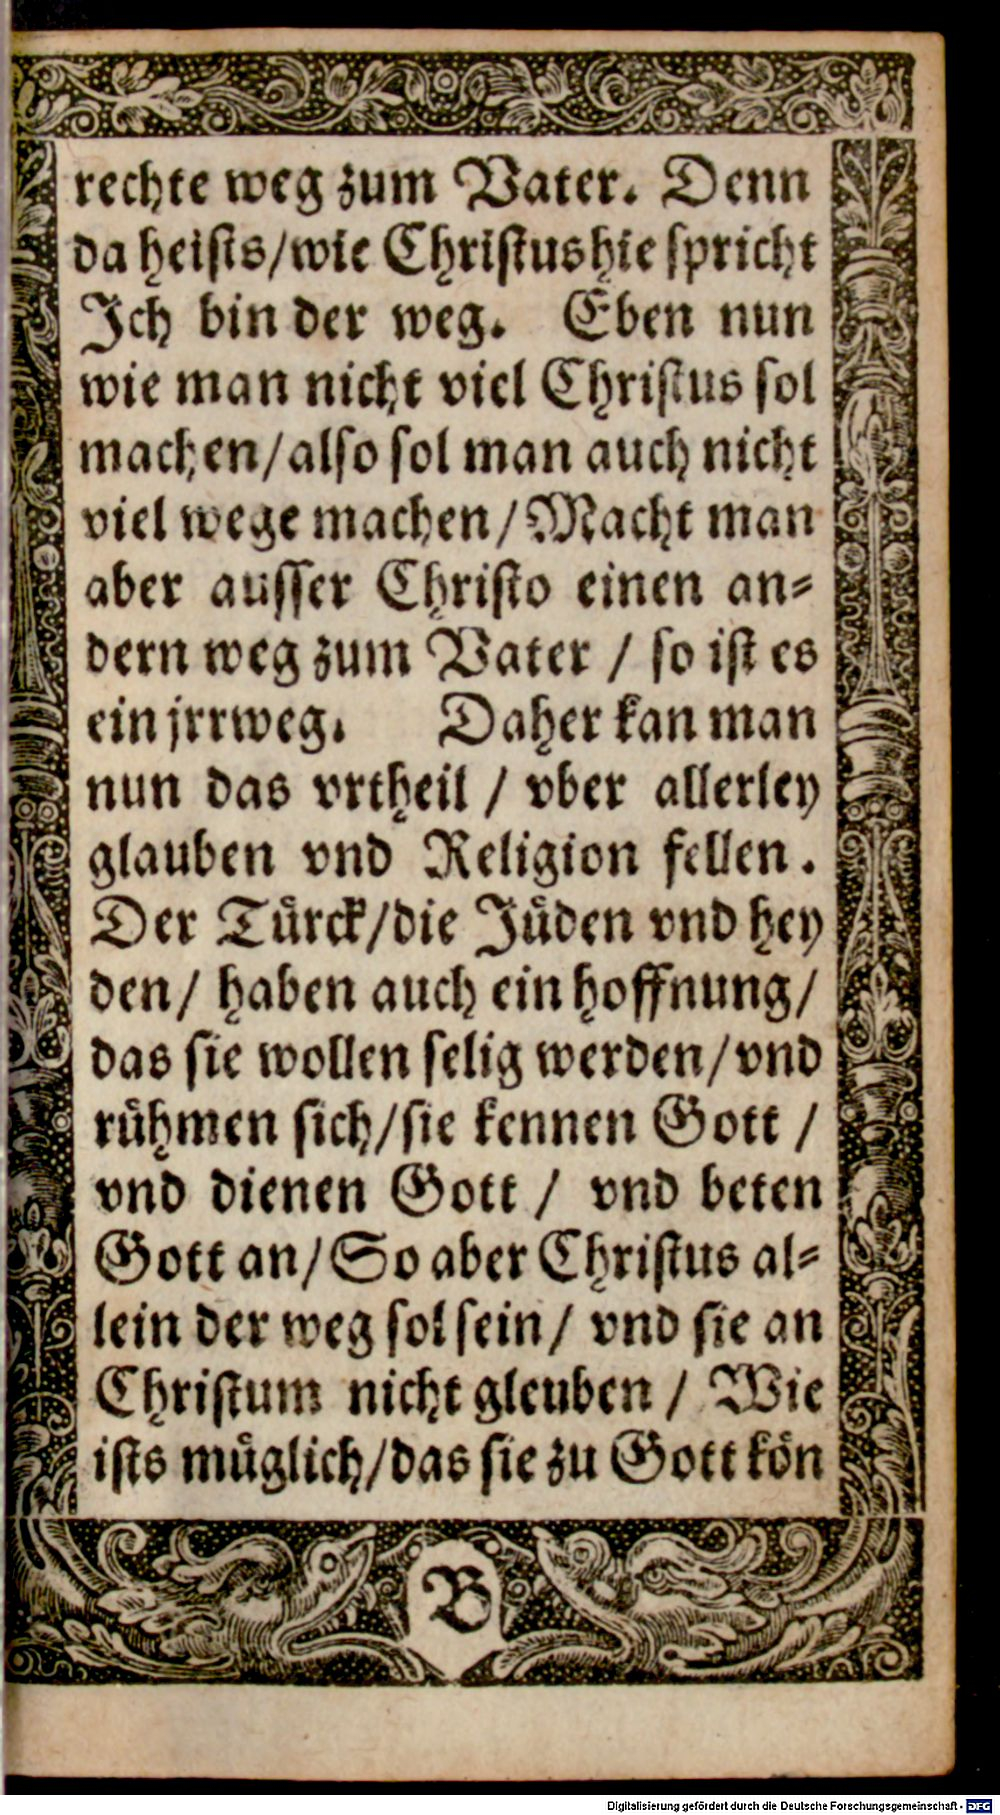 rechte weg zum Vater. Denn
da heists/wie Christus hie spricht
Jch bin der weg. Eben nun
wie man nicht viel Christus sol
machen/also sol man auch nicht
viel wege machen/Macht man
aber ausser Christo einen an-
dern weg zum Vater / so ist es
ein jrrweg. Daher kan man
nun das vrtheil / vber allerley
glauben vnd Religion fellen.
Der Türck/die Jüden vnd hey
den/ haben auch ein hoffnung/
das sie wollen selig werden/vnd
rühmen sich/sie kennen Gott /
vnd dienen Gott / vnd beten
Gott an/So aber Christus al-
lein der weg sol sein/ vnd sie an
Christum nicht gleuben / Wie
ists müglich/das sie zu Gott kön
B
Digitalisierung gefördert durch die Deutsche Forschungsgemeinschaft - DFG